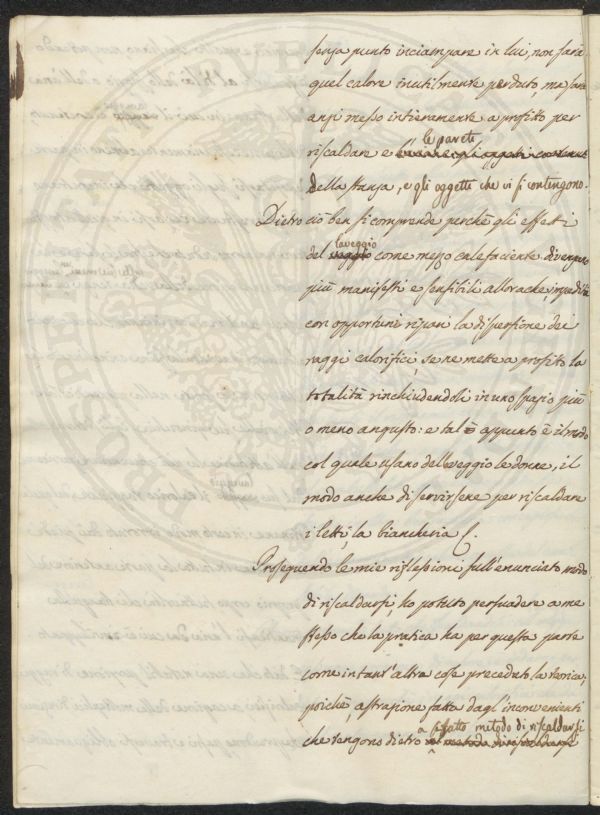 senza punto inciampare in lui, non sarà
quel calore inutilmente perduto, ma sarà
anzi messo intieramente a profitto per
le pareti
riscaldare e
della stanza, e gli oggetti che vi si contengono.
Dietro ciò ben si comprende perchè gli effetti
laveggio
del veggio come mezzo calefaciente divengano
più manifesti e sensibili allorache, impedita
con opportuni ripari la dispersione dei
raggi calorifici, se ne mette a profito la
totalità rinchiudendoli in uno spazio più
o meno angusto: e tal è appunto è il modo
col quale usano dell veggio le donne, il
modo anche di servirsene per riscaldare
i letti, la biancheria
Proseguendo le mie riflessioni sull'enunciato modo
di riscaldarsi, ho potuto persuadere a me
stesso che la pratica ha per questa parte
come in tant'altre cose preceduto la teorica;
poichè, astrazione fatta dagl'inconvenienti
a siffatto metodo di riscaldarsi
che tengono dietro al metodo di riscaldarsi